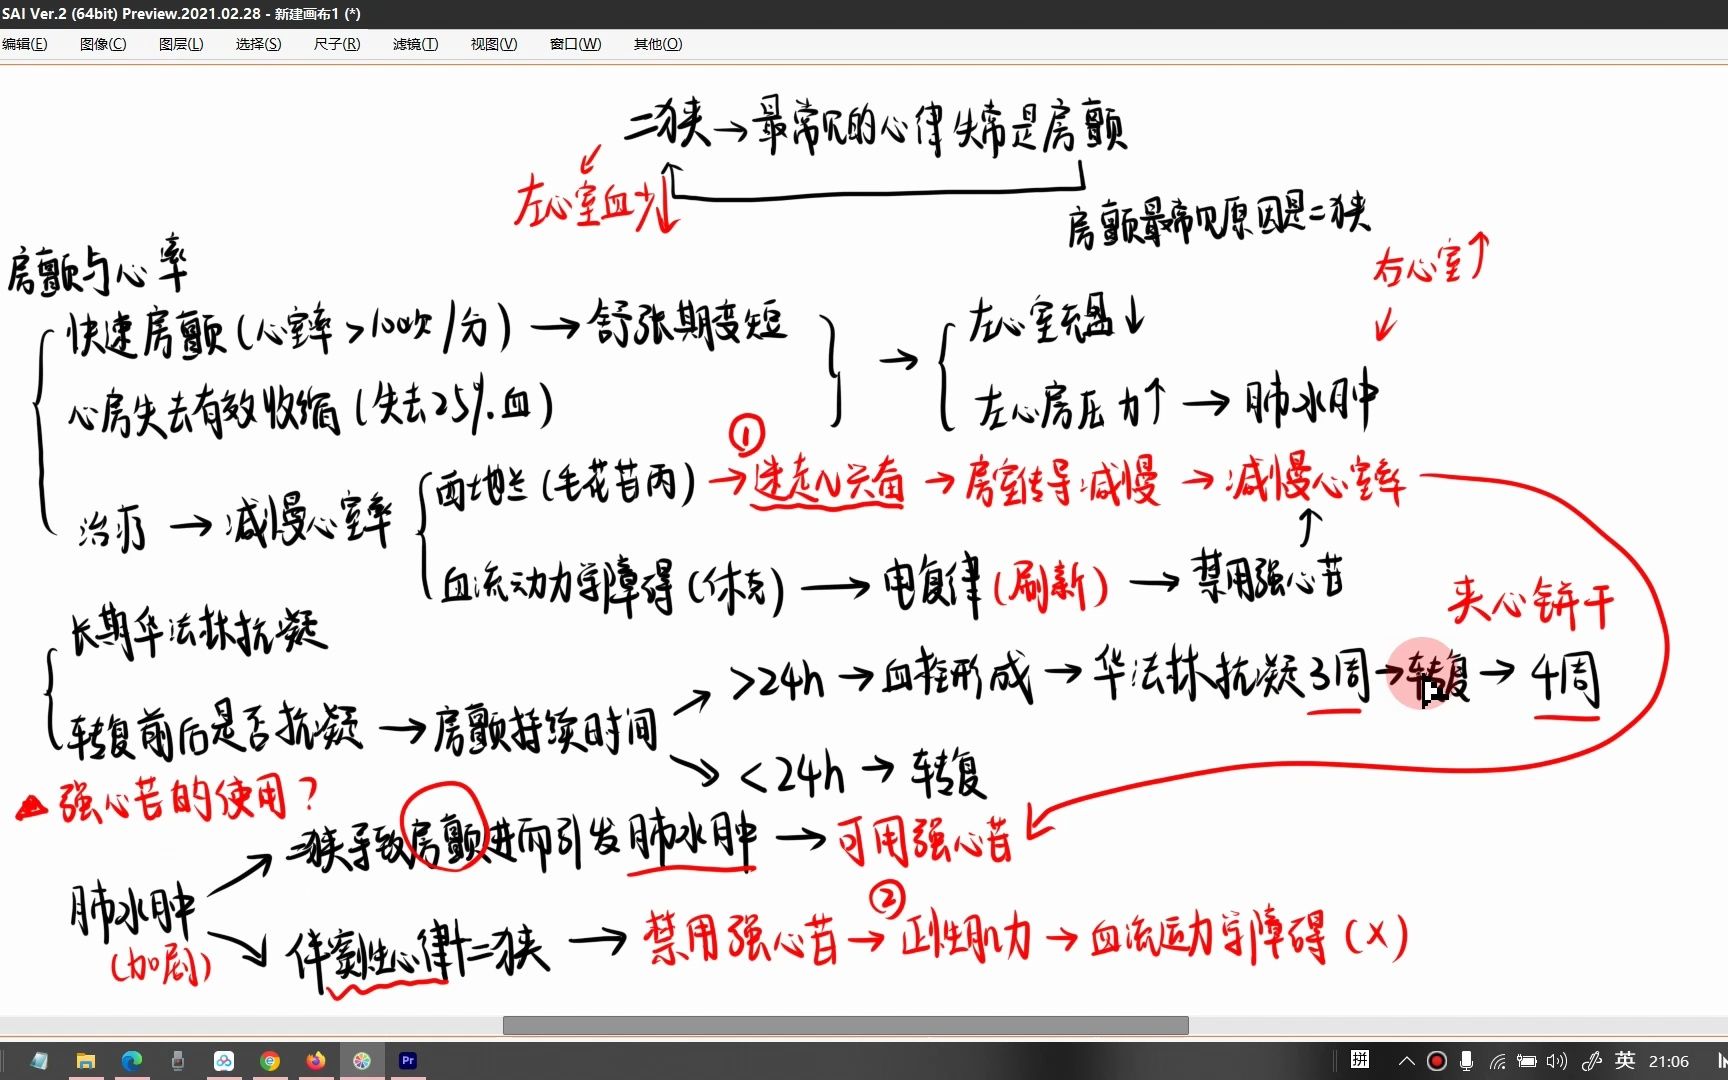 SAI Ver.2 (64bit) Preview.2021.02.28 - 新建画布1 (*)
编辑(E) 图像(C) 图层(L) 选择(S) 尺子(R) 滤镜(T) 视图(V) 窗口(W) 其他(O)
二狭→最常见的心律失常是房颤
左心室血少↓
房颤最常见原因是二狭
右心室↑
房颤与心率
快速房颤(心室率>100次/分)→舒张期变短
左心室充盈↓
心房失去有效收缩(失去25%血)
左心房压力↑→肺水肿
①
西地兰(毛花苷丙)→迷走N兴奋→房室传导减慢→减慢心室率
治疗→减慢心室率
血流动力学障碍(休克)→电复律(刷新)→禁用强心苷
夹心饼干
长期华法林抗凝
>24h→血栓形成→华法林抗凝3周→转复→4周
转复前后是否抗凝→房颤持续时间
<24h→转复
▲强心苷的使用?
二狭导致房颤进而引发肺水肿→可用强心苷
肺水肿
(加剧)
②
伴窦性心律+二狭→禁用强心苷→正性肌力→血流动力学障碍(×)
Pr
拼
英
21:06